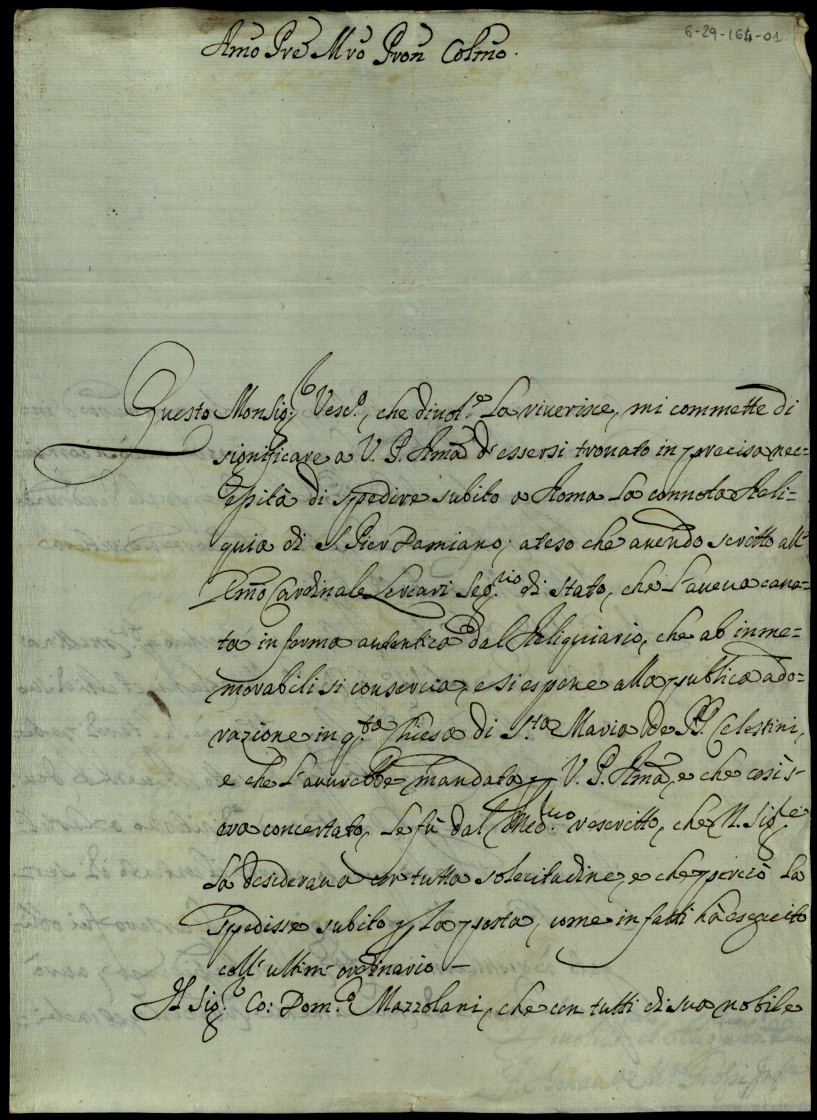 6-29-164-01
Rmo Pre Mro Pron Colmo.
Questo Monsig.r Vesc.o, che divot.e La riverisce, mi commette di
significare a V. P. Rma d'essersi trovato in precisa nec=
essità di spedire subito a Roma La connota Reli=
quia di S. Pier Damiano; ateso che avendo scritto all'
Emo Cardinale Lercari Seg.rio di Stato, che L'aveva cava=
ta in forma autentica dal Reliquiario, che ab inme=
morabili si conserva, e si espone alla publica ado=
razione in q.sta Chiesa di S.ta Maria de PP. Celestini,
e che L'avrebbe mandata p V. P. Rma, e che così s'
era concertato, Le fù dal Med.mo rescritto, che N. Sig.re
La desiderava con tutta solecitudine, e che perciò La
spedisse subito p La posta, come in fatti hà eseguito
coll' ultim' ordinario –
Il Sig.r Co: Dom.o Mazzolani, che con tutti di sua nobile